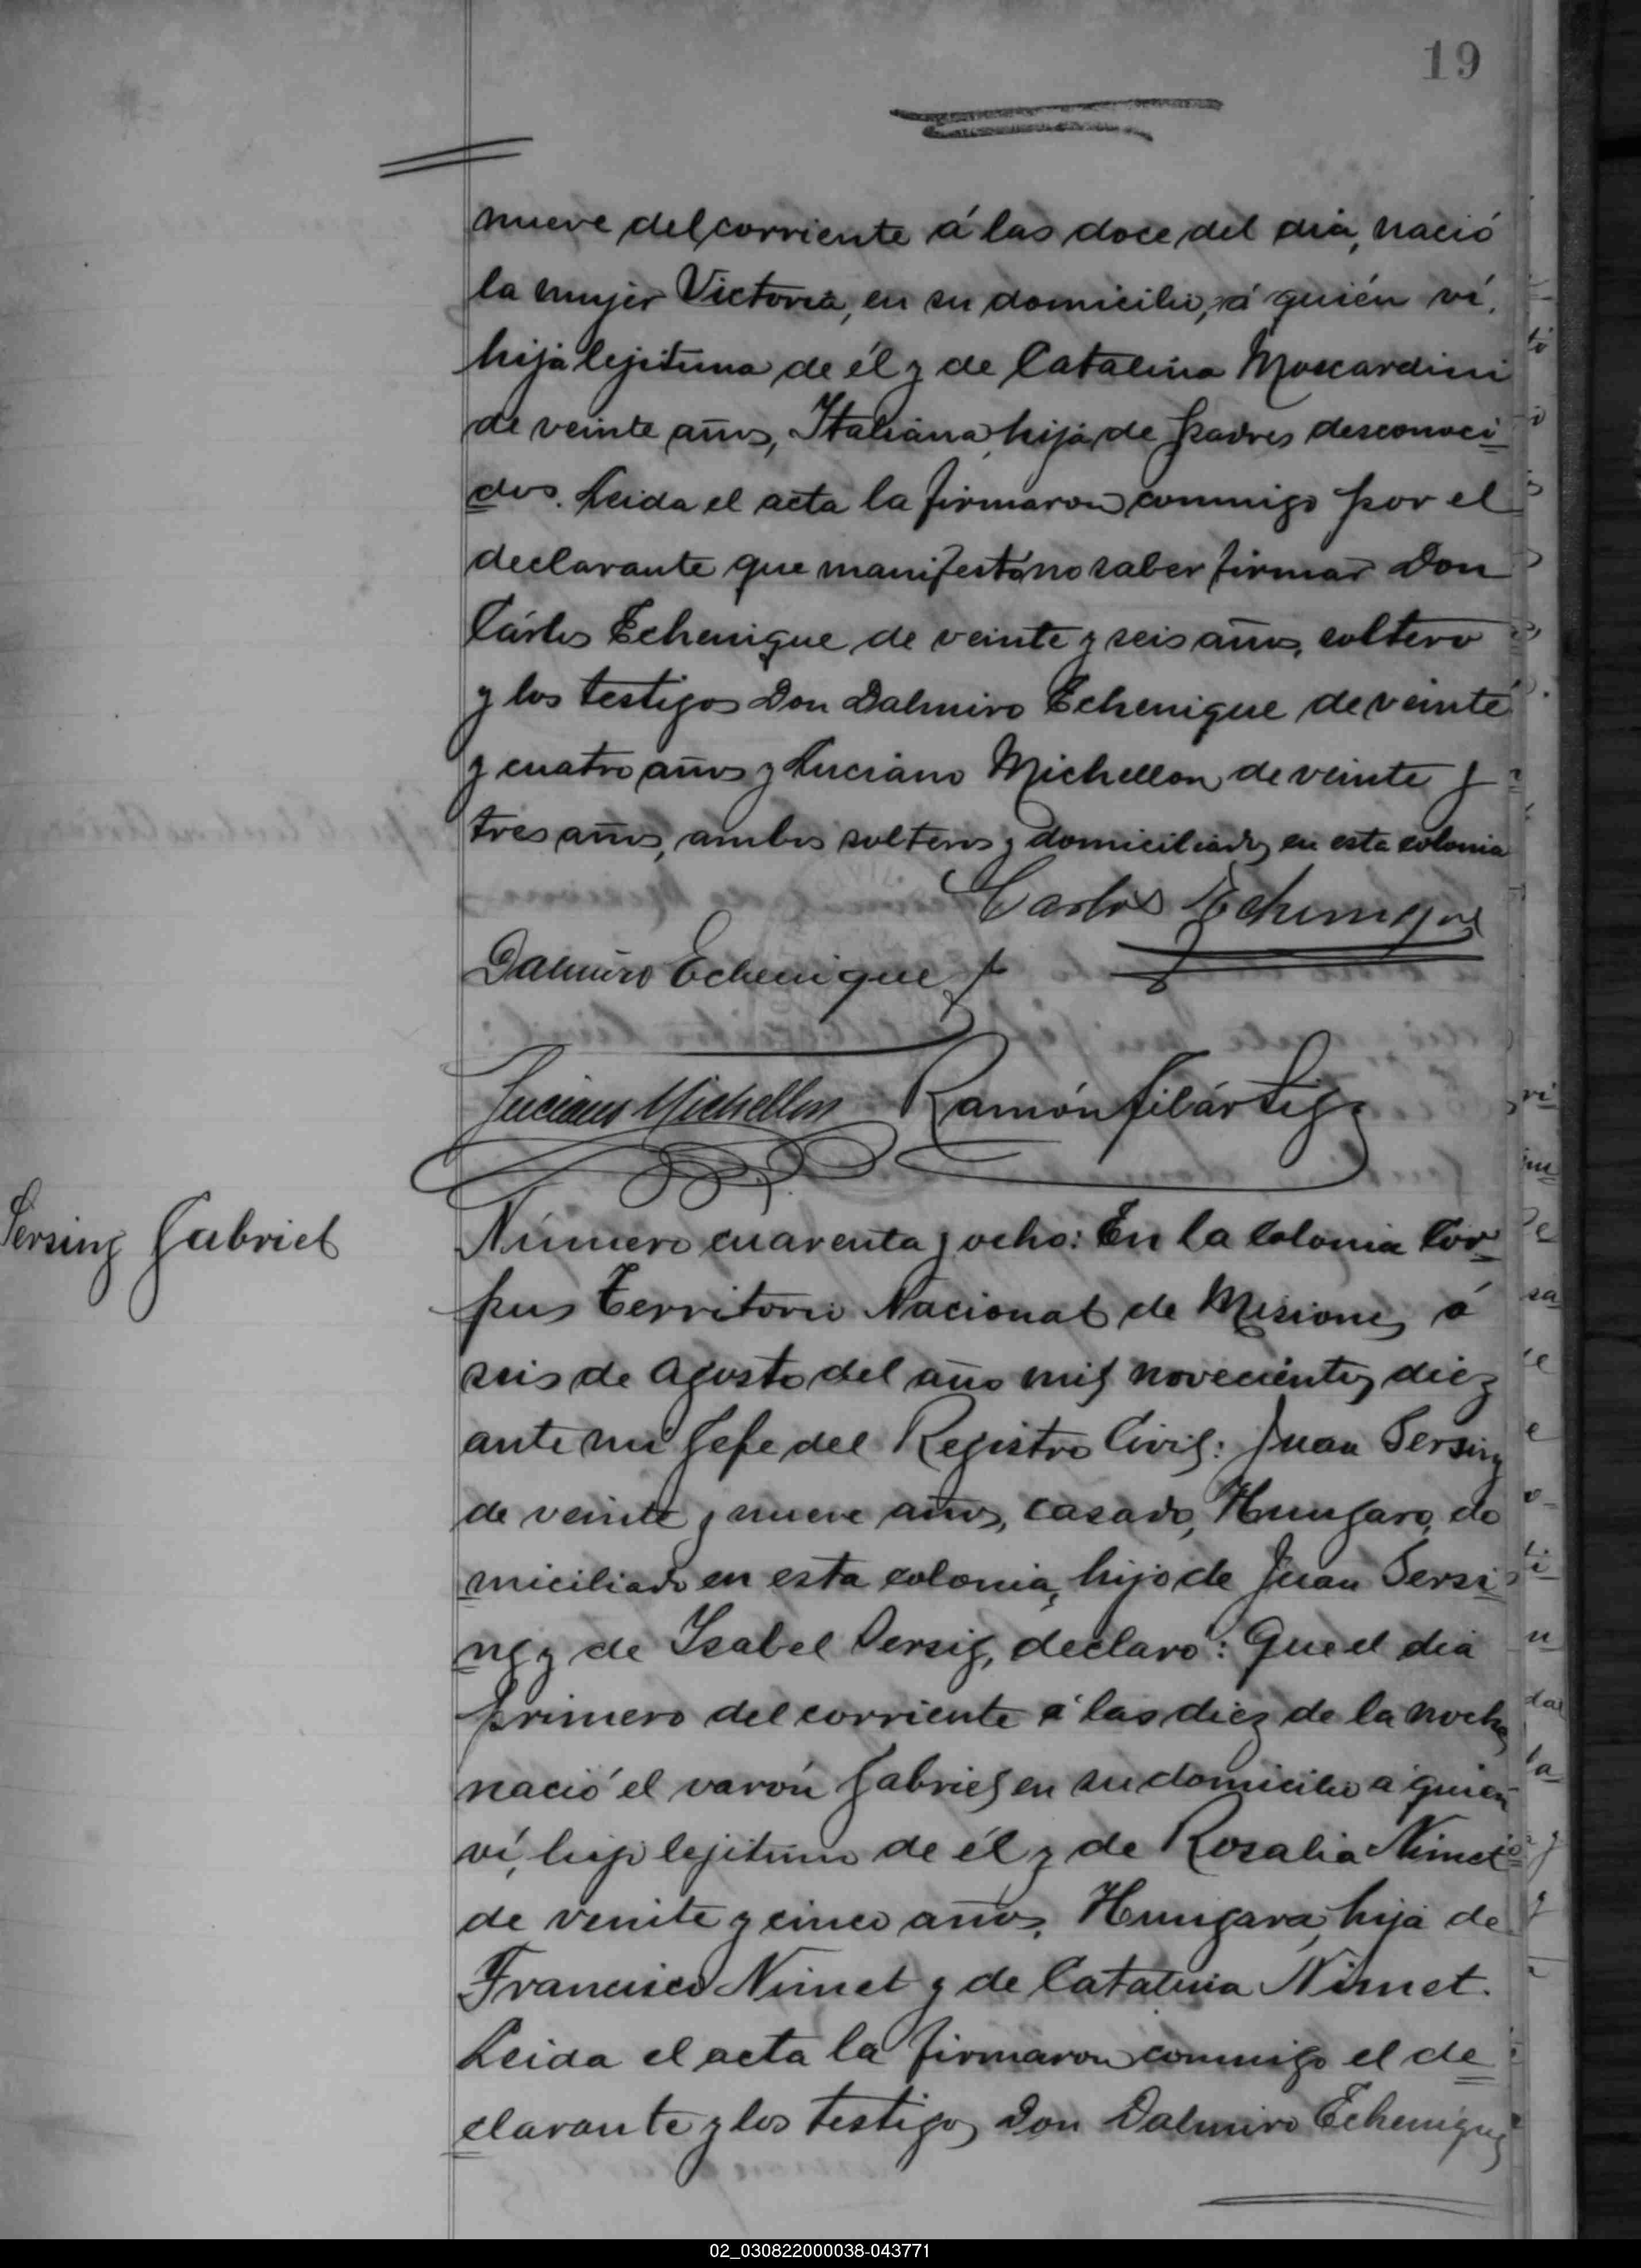 19
nueve del corriente á las doce del dia, nació
la mujer Victoria, en su domicilio, á quién ví,
hija lejitima de él y de Catalina Moscardini
de veinte años, Italiana, hija de padres desconoci
dos. Leida el acta la firmaron conmigo por el
declarante que manifestó no saber firmar Don
Cárlos Echenique de veinte y seis años, soltero
y los testigos Don Dalmiro Echenique de veinte
y cuatro años y Luciano Michellon de veinte y
tres años, ambos solteros y domiciliados en esta colonia
Carlos Echenique
Dalmiro Echenique
Luciano Michellon Ramón Filártiga
Persing Gabriel
Número cuarenta y ocho: En la Colonia Cor
pus Territorio Nacional de Misiones á
seis de Agosto del año mil novecientos diez
ante mi Jefe del Registro Civil: Juan Persing
de veinte y nueve años, casado, Hungaro, do
miciliado en esta colonia, hijo de Juan Persi
ng y de Isabel Persig, declaró: Que el dia
primero del corriente á las diez de la noche
nació el varón Gabriel en su domicilio á quien
ví, hijo lejitimo de él y de Rosalia Nimet
de veinte y cinco años, Hungara, hija de
Francisco Nimet y de Catalina Nimet.
Leida el acta la firmaron conmigo el de
clarante y los testigos Don Dalmiro Echenique
02_030822000038-043771